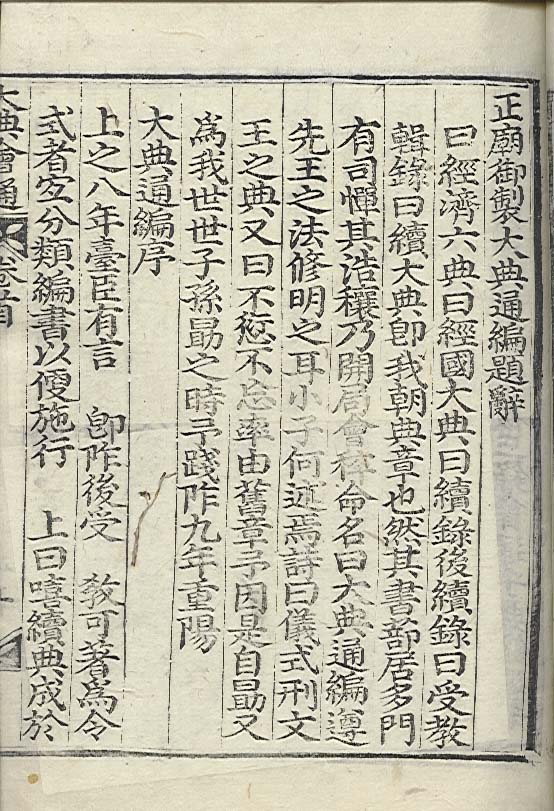 正廟御製大典通編題辭
曰經濟六典曰經國大典曰續錄後續錄曰受教
輯錄曰續大典卽我朝典章也然其書蔀居多門
有司憚其浩穰乃開局會稡命名曰大典通編遵
先王之法修明之耳小子何述焉詩曰儀式刑文
王之典又曰不愆不忘率由舊章予因是自勗又
爲我世世子孫勗之時予踐阼九年重陽
大典通編序
上之八年臺臣有言 卽阼後受 敎可著爲令
式者宜分類編書以便施行 上曰嘻續典成於
大典會通 卷首